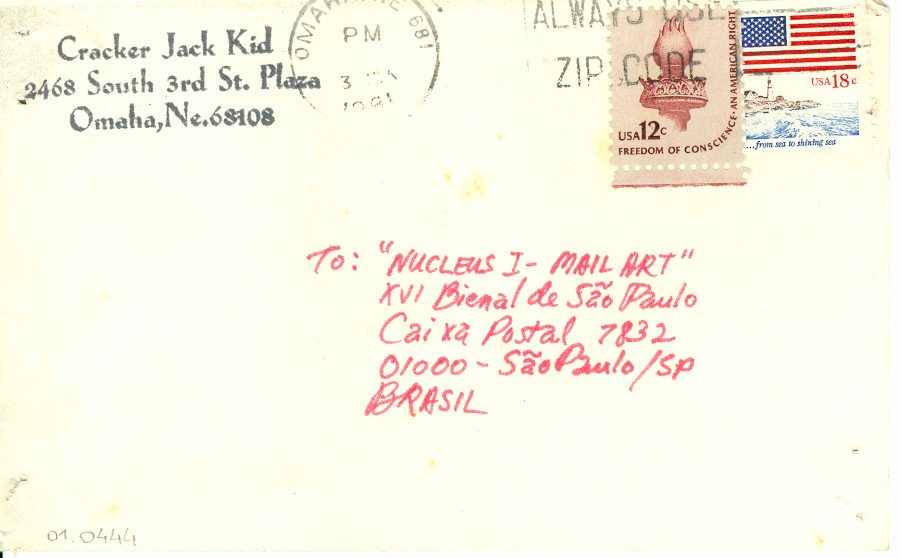 Cracker Jack Kid
2468 South 3rd St. Plaza
Omaha, Ne. 68108
OMAHA, NE 681
PM
3
1981
ALWAYS USE
ZIP CODE
USA 12c
FREEDOM OF CONSCIENCE-AN AMERICAN RIGHT
USA 18c
...from sea to shining sea
To: "NUCLEUS I - MAIL ART"
XVI Bienal de São Paulo
Caixa Postal 7832
01000 - São Paulo/SP
BRASIL
01.0444